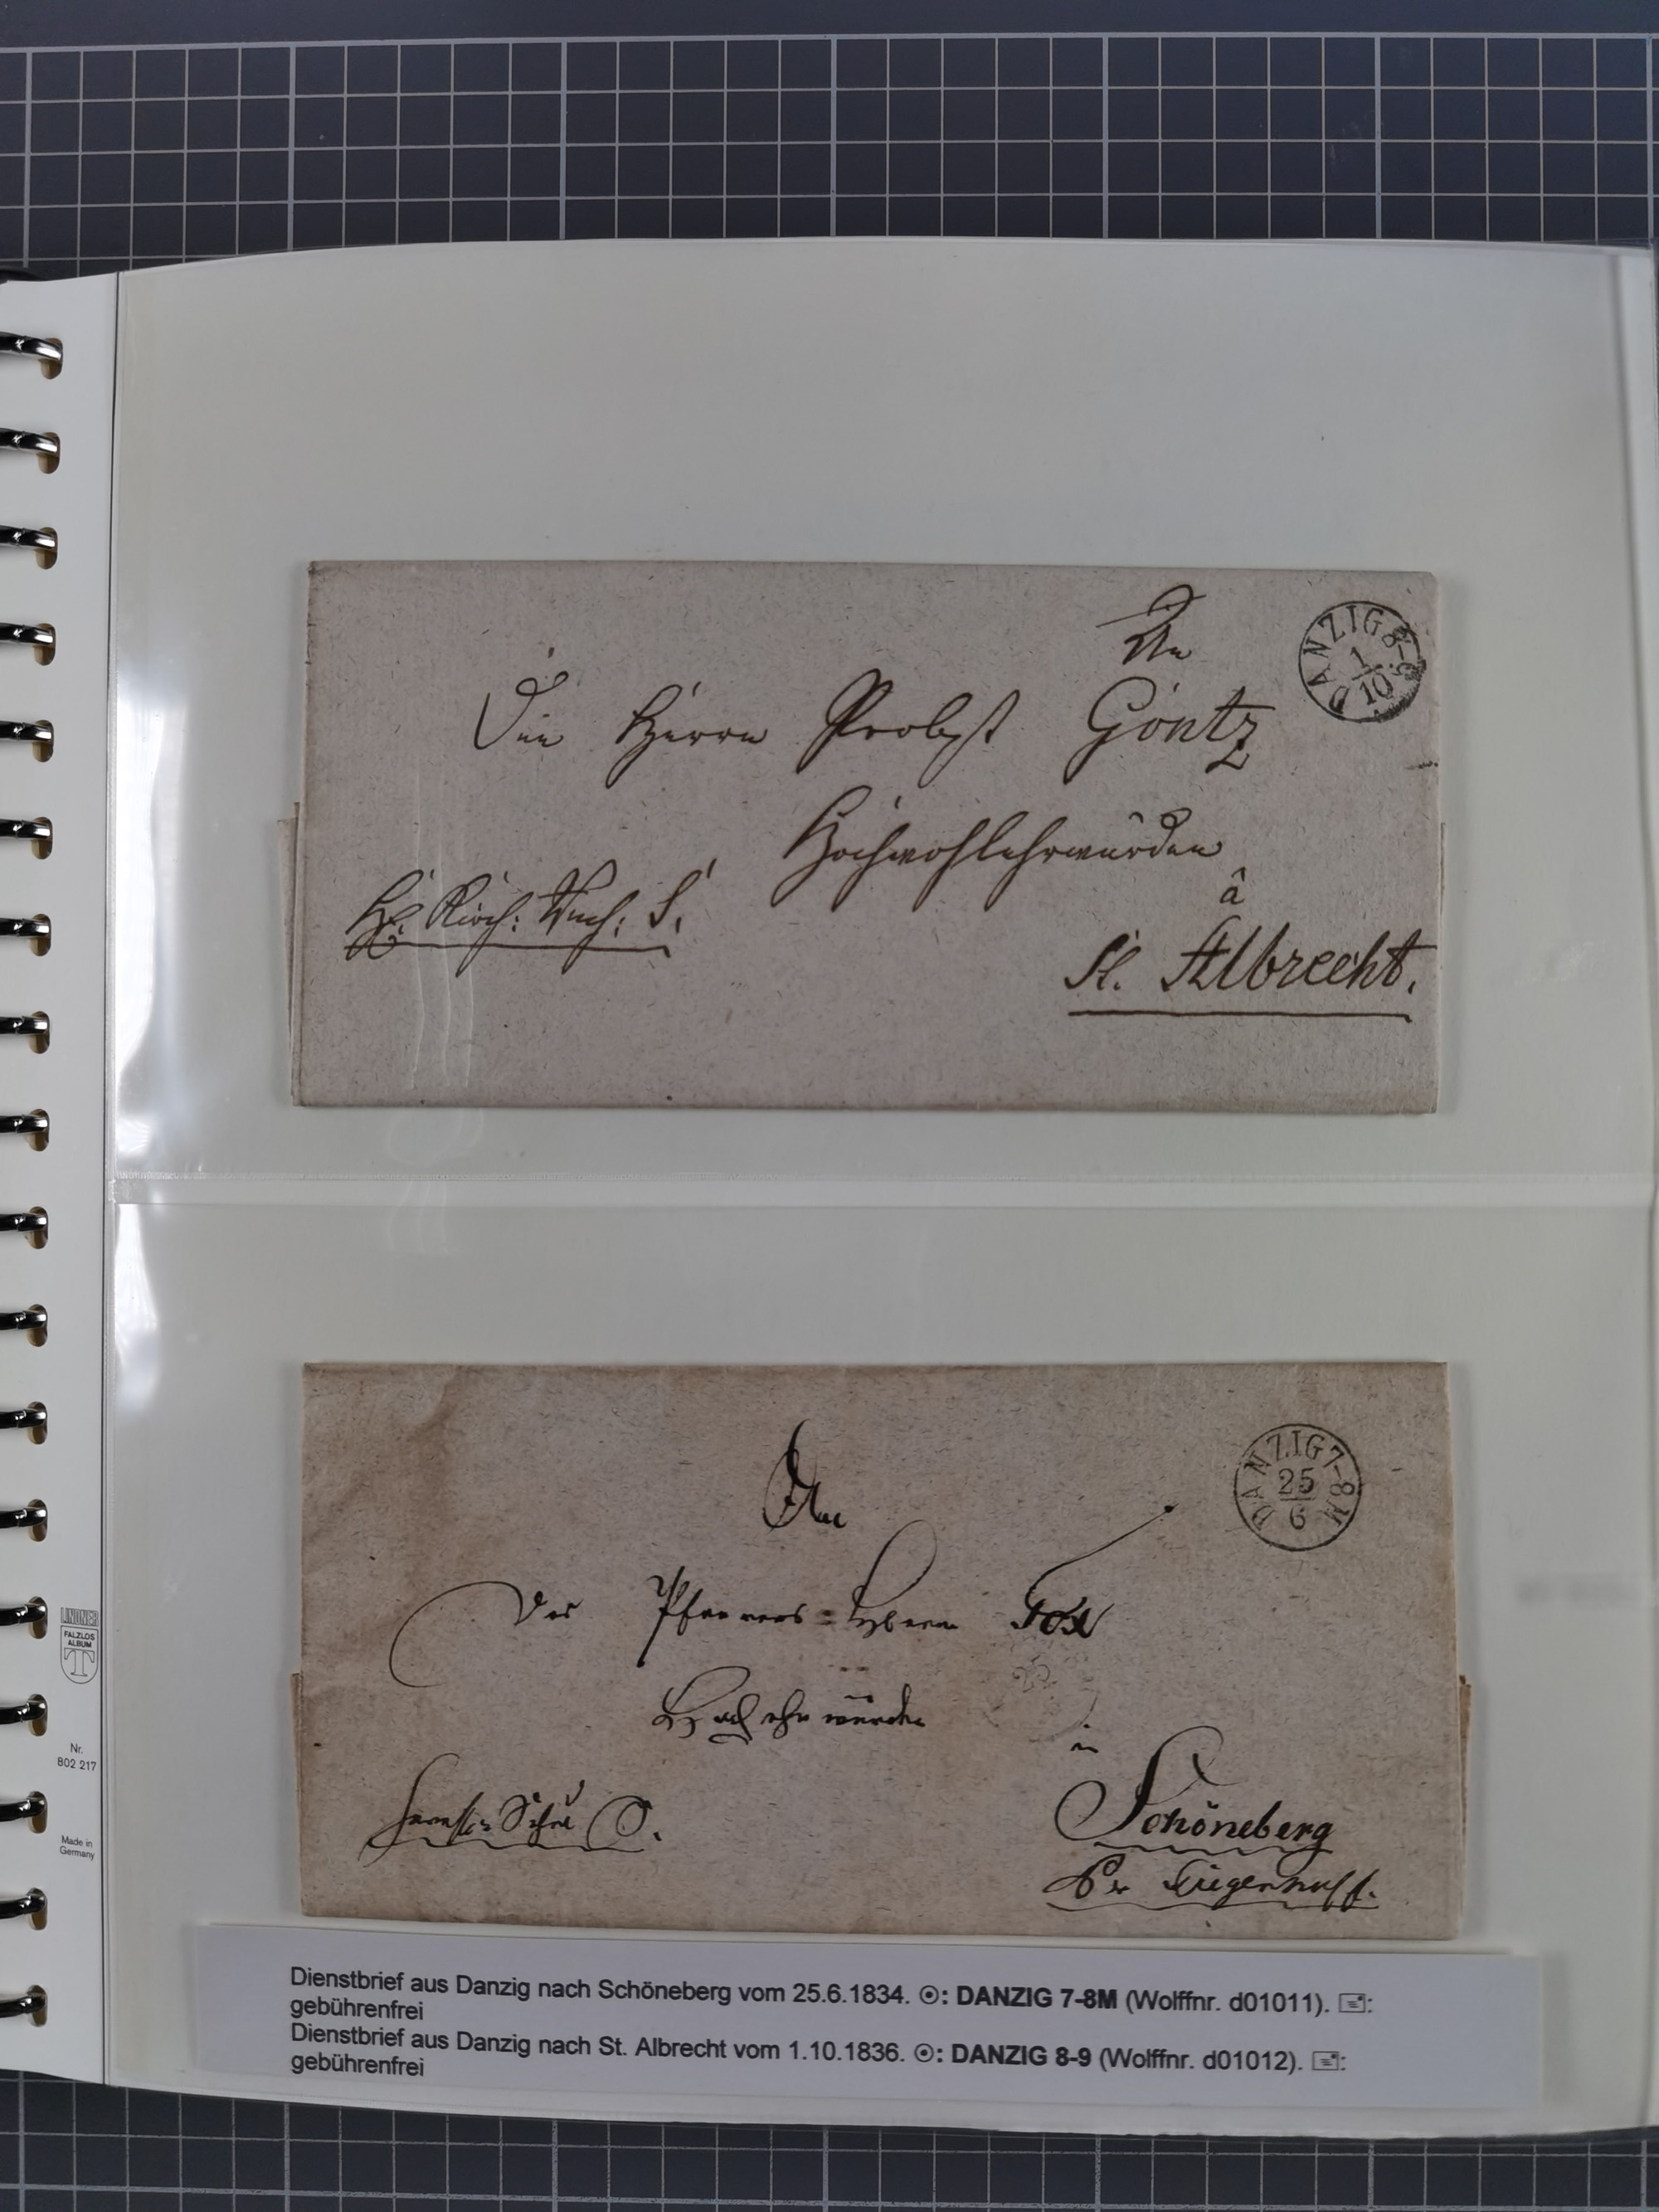 An
Den Herrn Probst Göntz
Hochwohlehrwürden
â
St. Albrecht.
DANZIG 8-9
1
10
An
des Pfarrers-Herrn Fox
Hochehrwürden
in
Schöneberg
Tiegenhoff.
DANZIG 7-8M
25
6
LINDNER
FALZLOS
ALBUM
T
Nr.
802 217
Made in
Germany
Dienstbrief aus Danzig nach Schöneberg vom 25.6.1834. ⊙: DANZIG 7-8M (Wolffnr. d01011). 🖃:
gebührenfrei
Dienstbrief aus Danzig nach St. Albrecht vom 1.10.1836. ⊙: DANZIG 8-9 (Wolffnr. d01012). 🖃:
gebührenfrei